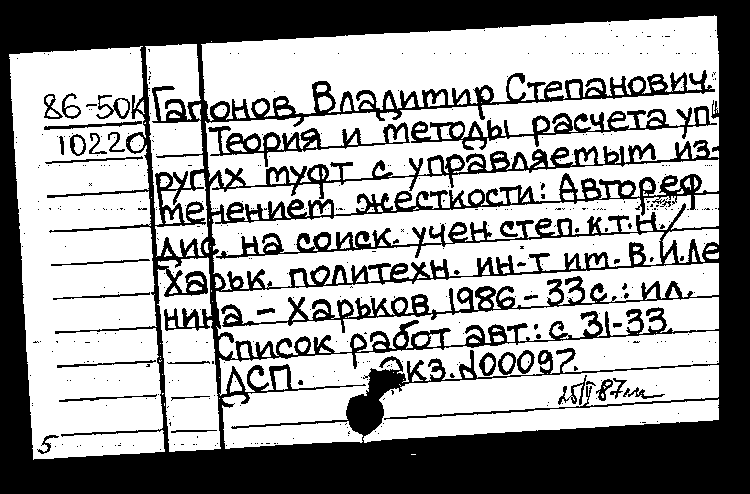 86-50К Гапонов, Владимир Степанович.
10220 Теория и методы расчета уп-
ругих муфт с управляемым из-
менением жесткости: Автореф.
дис. на соиск. учен. степ. к.т.н./
Харьк. политехн. ин-т им. В.И.Ле
нина. – Харьков, 1986. – 33с.: ил.
Список работ авт.: с. 31-33.
ДСП. Экз. N00097.
5